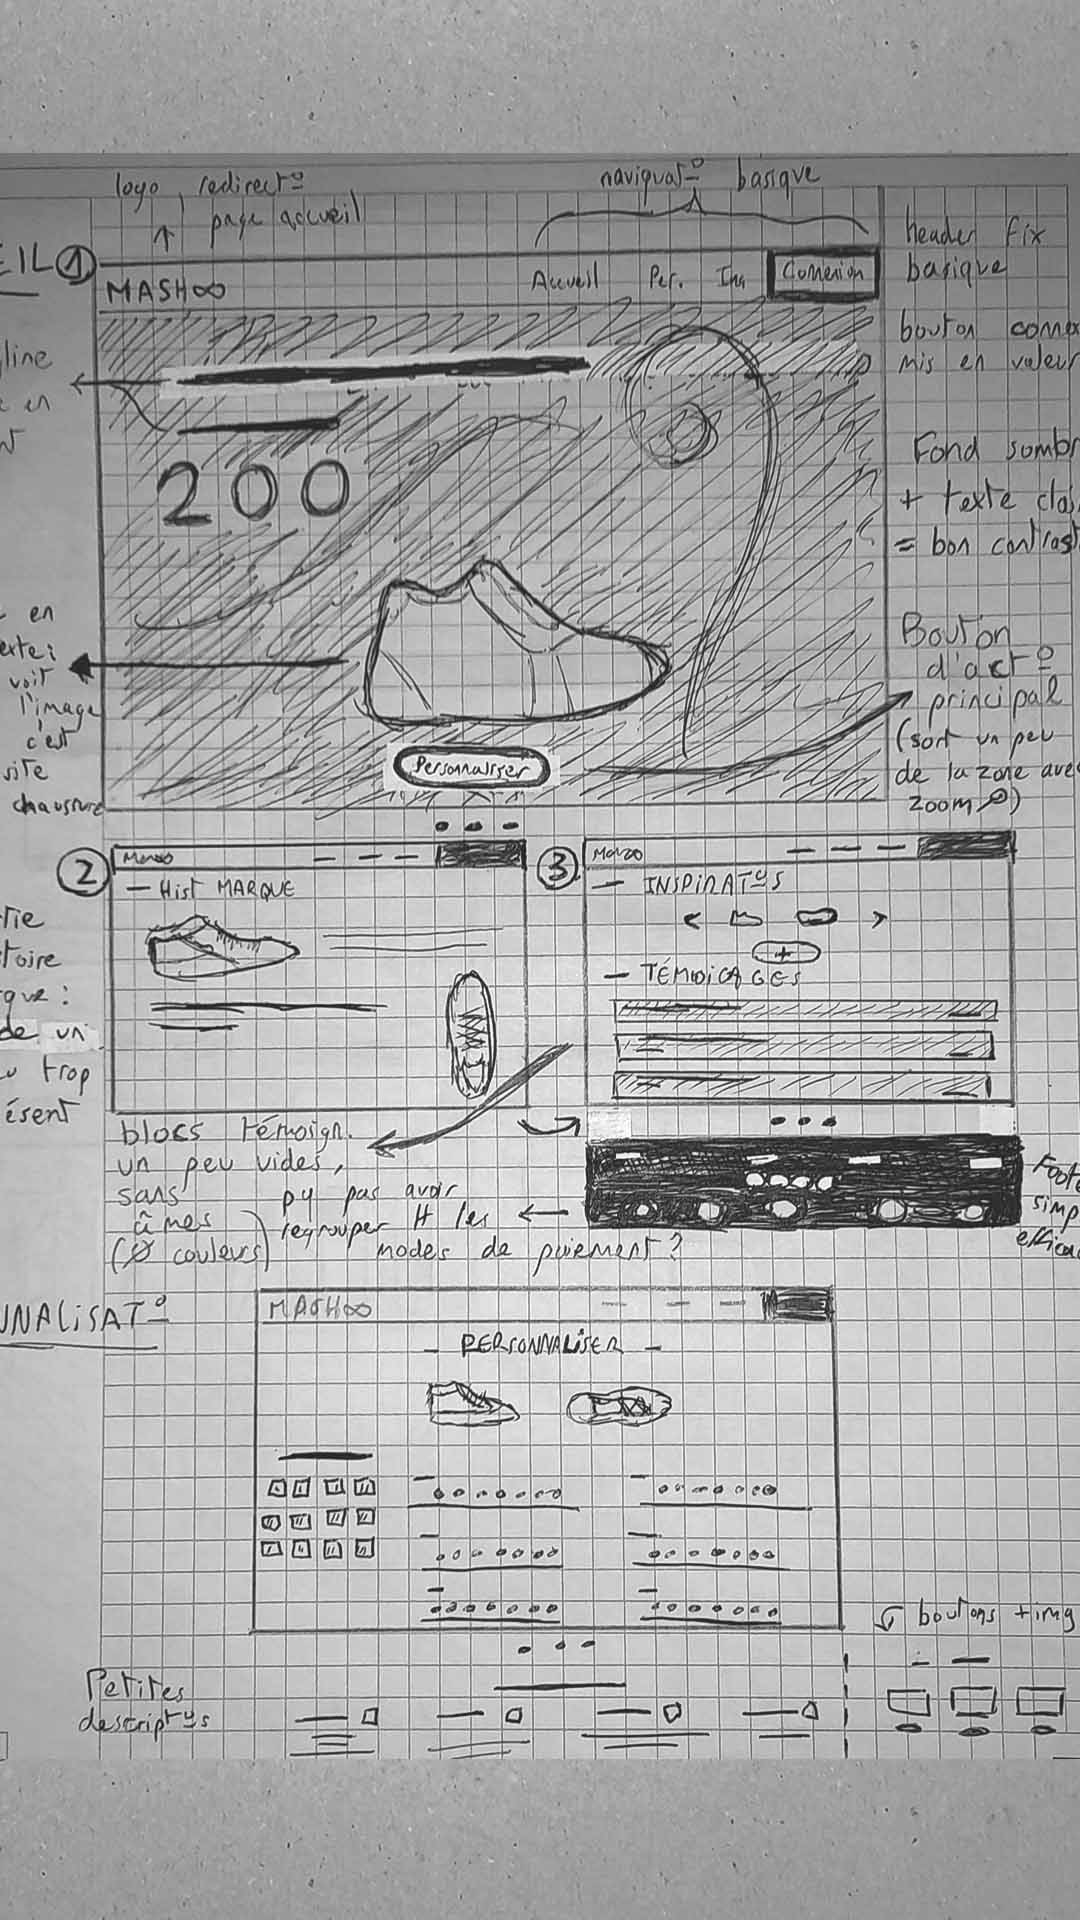 logo, redirect°
page accueil
navigat° basique
EIL ①
MASH∞
Accueil Per. Ins Connexion
header fix
basique
bouton connex
mis en valeur
gline
en
200
Fond sombr
+ texte clai
= bon contrast
Bouton
d'act°
principal
(sort un peu
de la zone avec
zoom)
en
erte:
voit
l'image
c'est
site
chaussure
Personnaliser
②
— Hist MARQUE
③
— INSPIRAT°S
< >
+
— TÉMOIGAGES
rtie
stoire
rque:
de un
u trop
ésent
blocs témoign.
un peu vides,
sans
âmes
(∅ couleurs)
pq pas avoir
regrouper tt les
modes de paiement?
Foote
simp
efficac
NNALISAT°
MASH∞
— PERSONNALISER —
boutons + img
Petites
descript°s